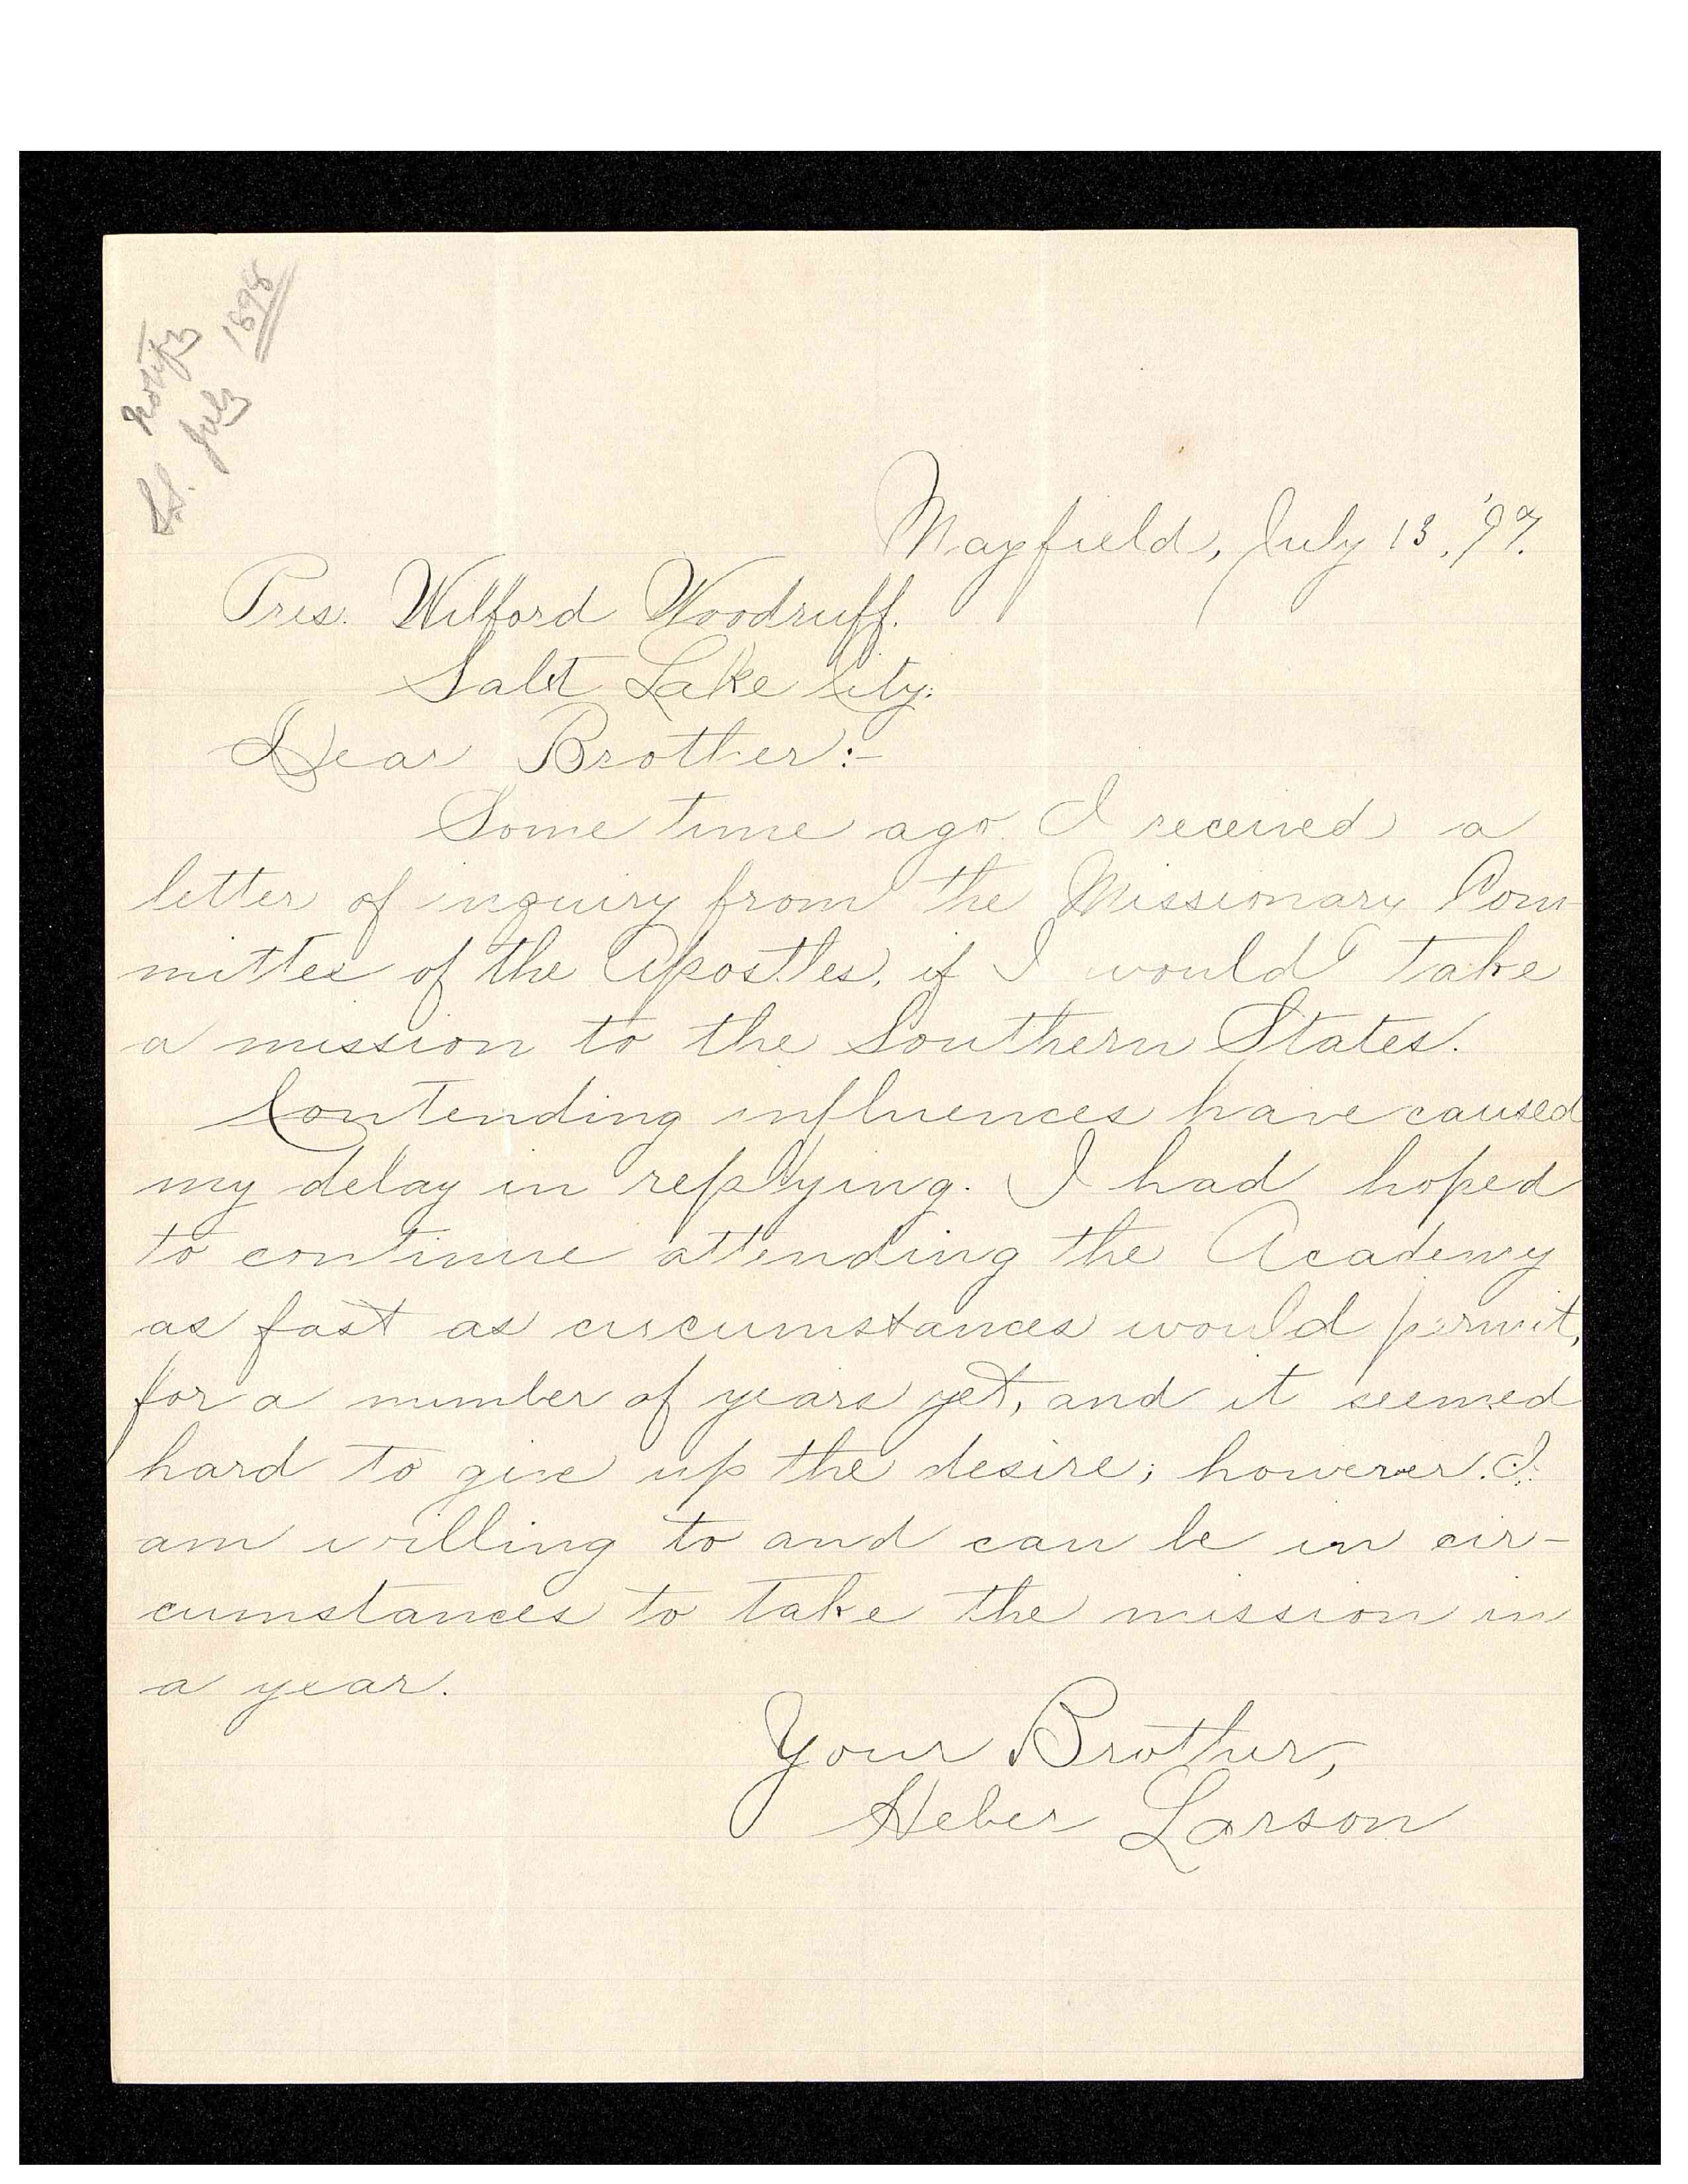 Notify
S.S. July 1898
Mayfield, July 13, '97.
Pres. Wilford Woodruff.
Salt Lake City.
Dear Brother:-
Some time ago I received a
letter of inquiry from the Missionary Com-
mittee of the Apostles, if I would take
a mission to the Southern States.
Contending influences have caused
my delay in replying. I had hoped
to continue attending the Academy
as fast as circumstances would permit,
for a number of years yet, and it seemed
hard to give up the desire; however. I
am willing to and can be in cir-
cumstances to take the mission in
a year.
Your Brother,
Heber Larson